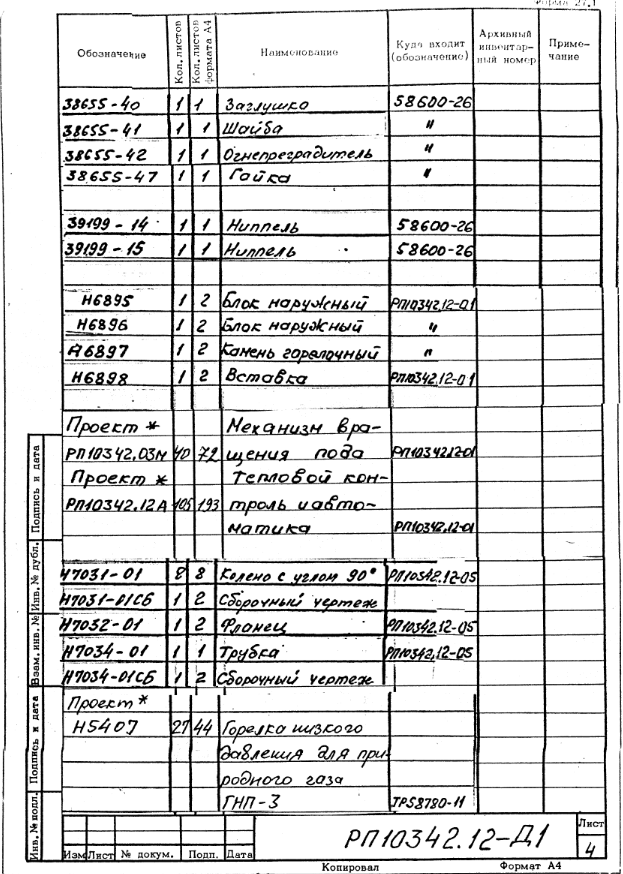 Форма 27.1
Обозначение Кол. листов Кол. листов формата А4 Наименование Куда входит (обозначение) Архивный инвентарный номер Примечание
38655-40 1 1 Заглушка 58600-26
38655-41 1 1 Шайба "
38655-42 1 1 Огнепреградитель "
38655-47 1 1 Гайка "
39199-14 1 1 Ниппель 58600-26
39199-15 1 1 Ниппель 58600-26
Н6895 1 2 Блок наружный РП10342.12-01
Н6896 1 2 Блок наружный "
Н6897 1 2 Камень горелочный "
Н6898 1 2 Вставка РП10342.12-01
Проект * Механизм вра-
РП10342.03М 40 72 щения пода РП10342.12-01
Проект * Тепловой кон-
РП10342.12А 105 193 троль и авто-
матика РП10342.12-01
Н7031-01 8 8 Колено с углом 90° РП10342.12-05
Н7031-01СБ 1 2 Сборочный чертеж
Н7032-01 1 2 Фланец РП10342.12-05
Н7034-01 1 1 Трубка РП10342.12-05
Н7034-01СБ 1 2 Сборочный чертеж
Проект *
Н5407 27 44 Горелка низкого
давления для при-
родного газа
ГНП-3 ТР58780-11
Подпись и дата
Инв. № дубл.
Взам. инв. №
Подпись и дата
Инв. № подл.
Изм Лист № докум. Подп. Дата
РП10342.12-Д1
Лист
4
Копировал Формат А4